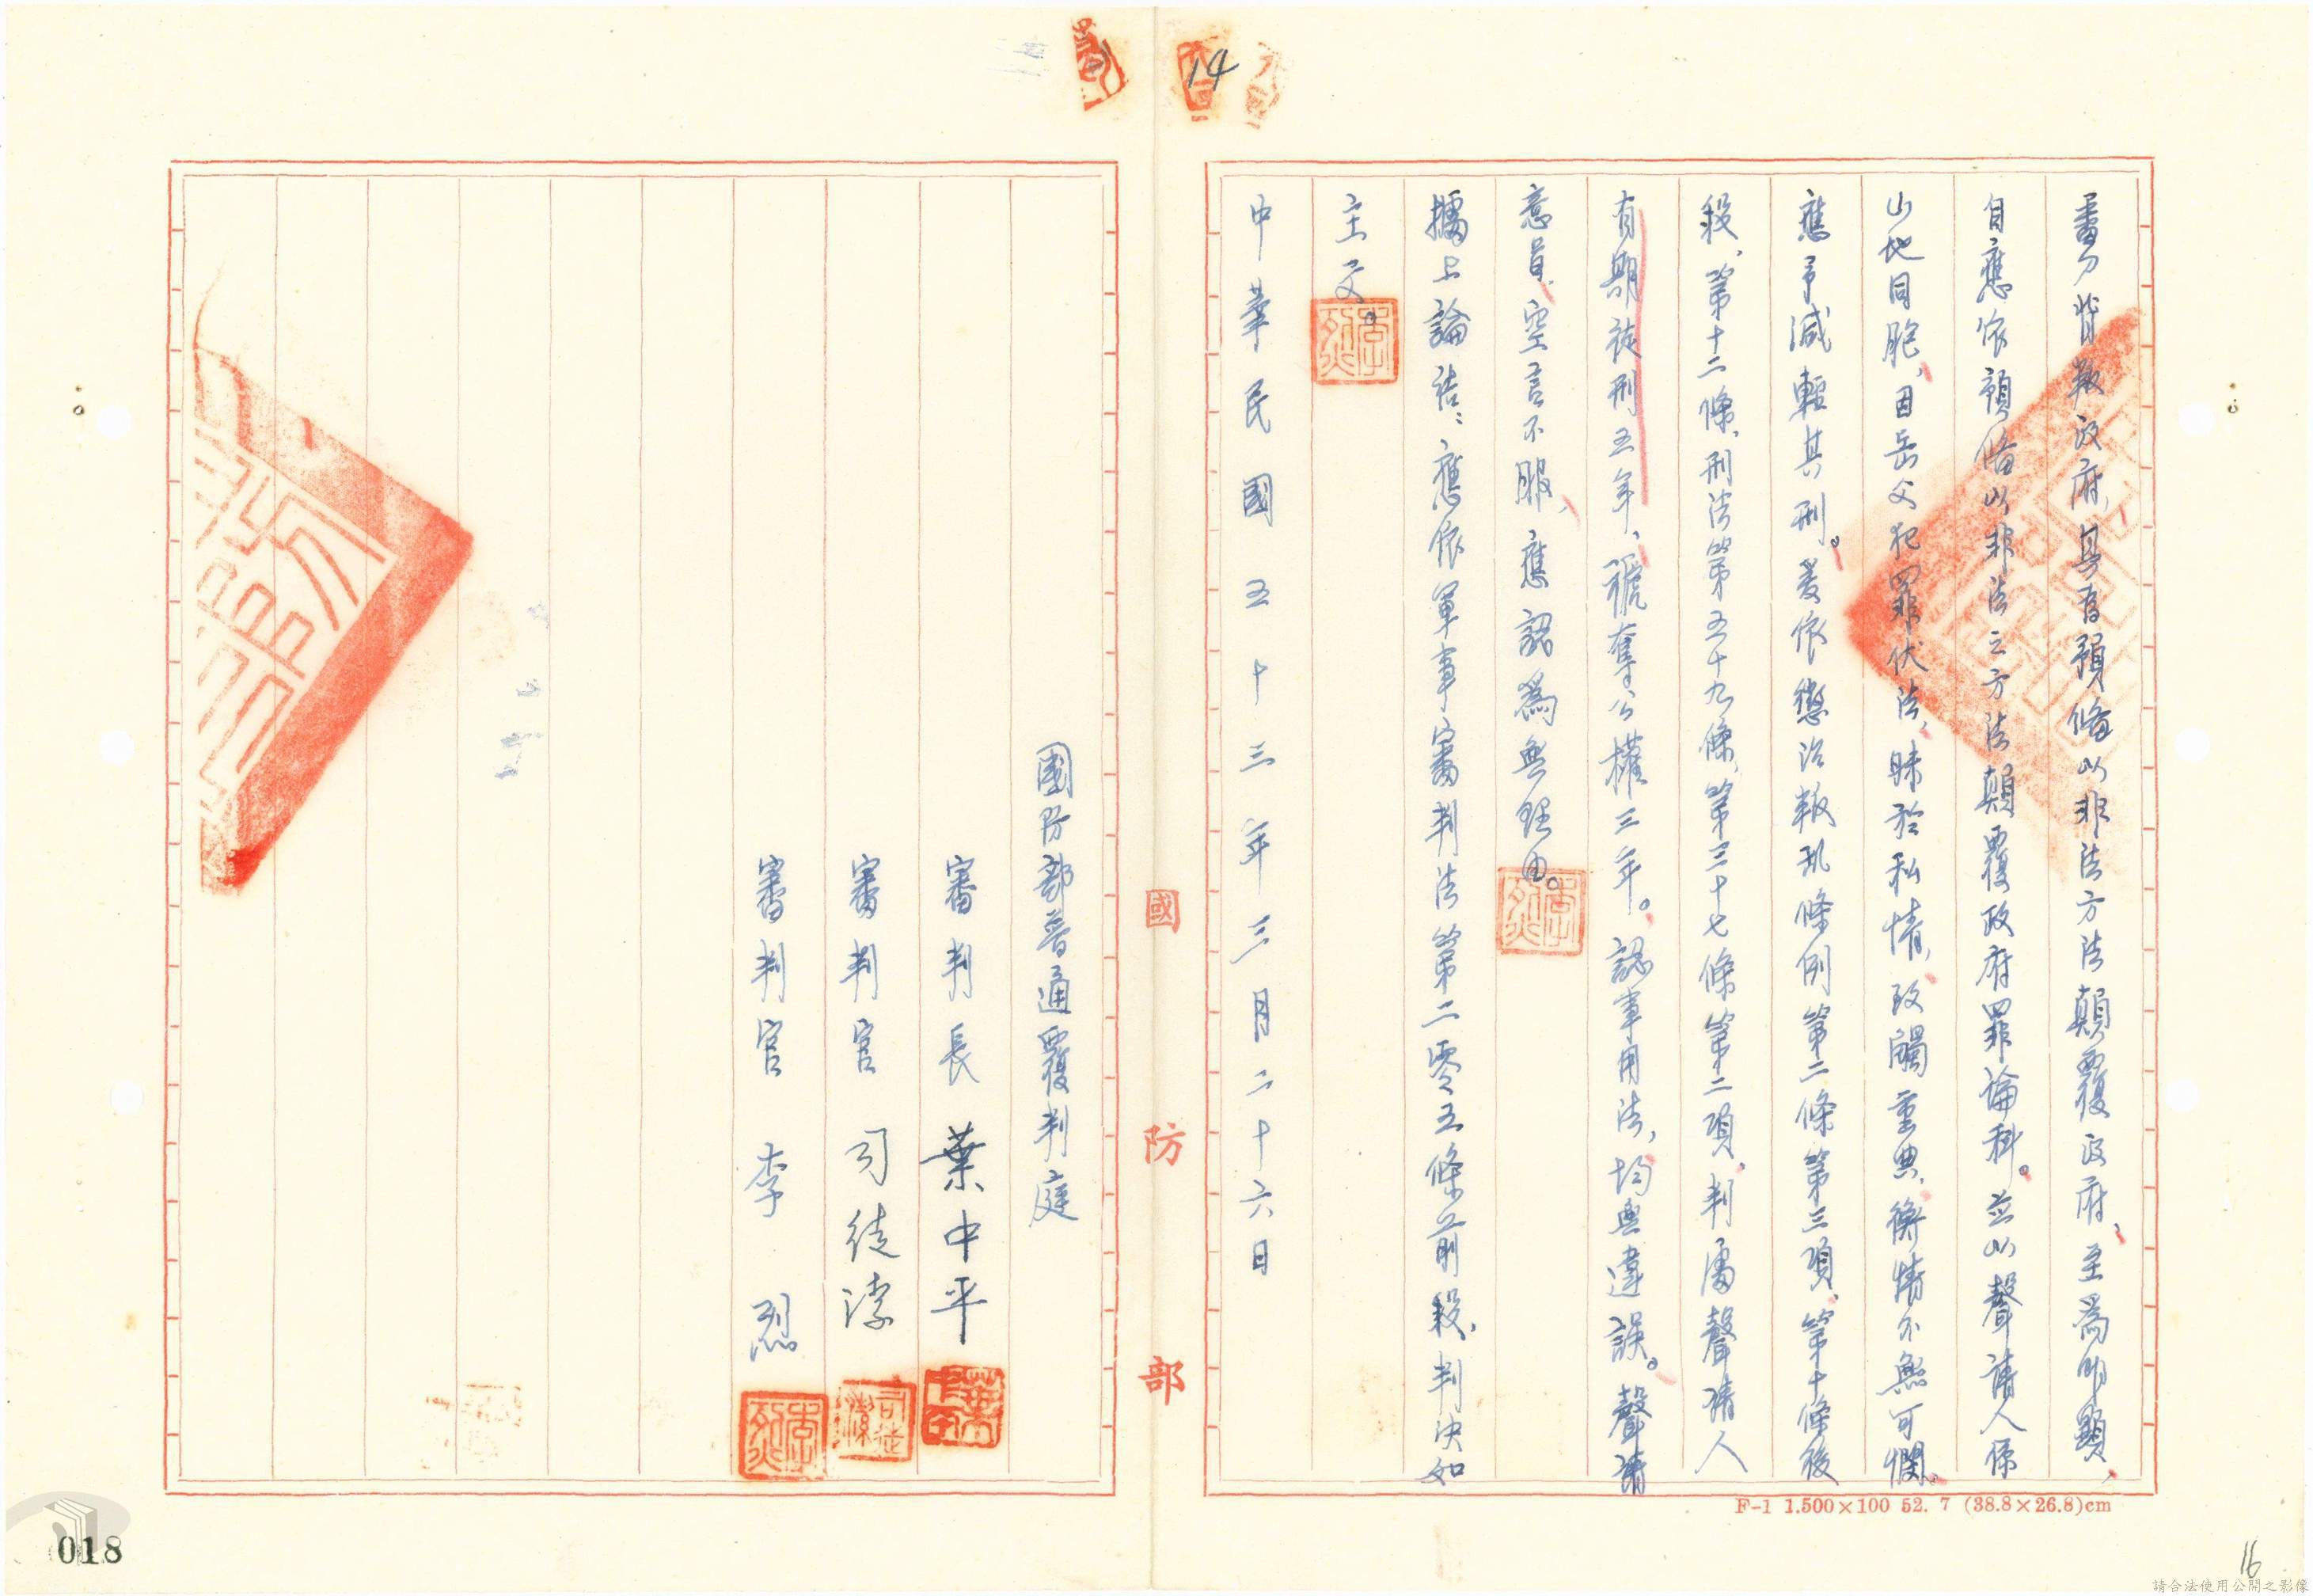 14
畫力背叛政府,其有預備以非法方法顛覆政府、至為明顯、
自應依預備以非法之方法顛覆政府罪論科。並以聲請人係
山地同胞、因岳父犯罪伏法、昧於私情、致觸重典、衡情不無可憫。
應予減輕其刑。爰依懲治叛亂條例第二條第三項、第十條後
段、第十二條、刑法第五十九條、第三十七條第二項、判處聲請人
有期徒刑五年、褫奪公權三年。認事用法、均無違誤。聲請
意旨、空言不服、應認為無理由。
據上論結、應依軍事審判法第二零五條前段、判決如
主文。
中華民國五十三年三月二十六日
國防部
國防部普通覆判庭
審判長 葉中平
審判官 司徒
審判官 李烈
F-1 1.500×100 52. 7 (38.8×26.8)cm
018
16
請合法使用公開之影像